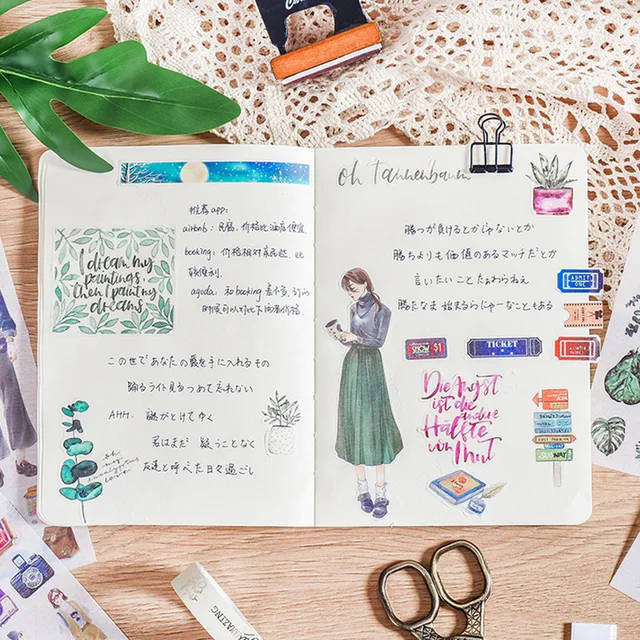 推荐app:
airbnb: 民宿, 价格比酒店便宜
booking: 价格相对亲民, 比
较便利.
agoda: 和booking差不多, 订的
时候可以对比下两家价格
I dream my
paintings,
then I paint my
dreams
この世であなたの愛を手に入れるもの
踊るライト見るつめて忘れない
AHH. 謎がとけてゆく
君はまだ 疑うことなく
友達と呼べた日々過ごし
oh
my
eucalyptus
love
oh Tannenbaum
勝つが負けるとかじゃないとか
勝ちよりも価値のあるマッチだとか
言いたいことたぁわらねぇ
勝たなま 始まるらにゃーなこともある
ADMIT
ONE
SHOW $1
TICKET
Die Angst
ist die
andere
Hälfte
von Mut
SUNWAY
AMAZING